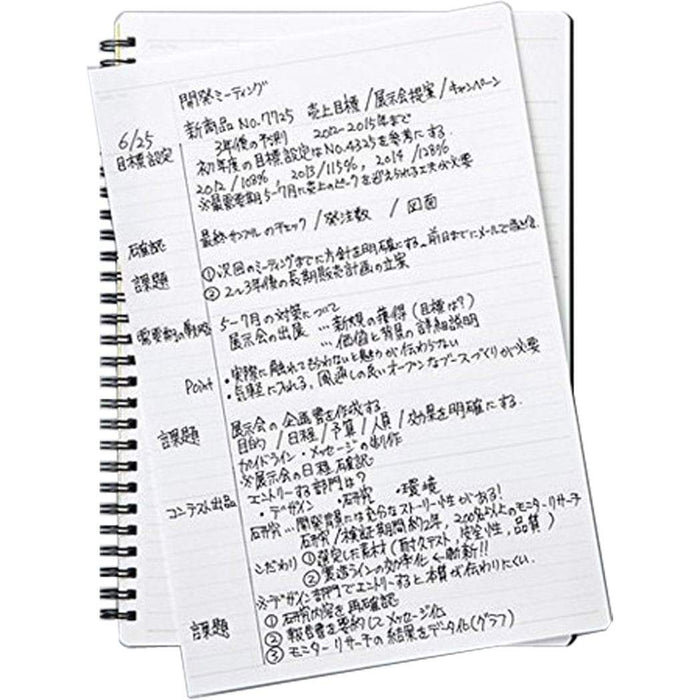 開発ミーティング
新商品No.7725 売上目標/展示会提案/キャンペーン
6/25
目標設定
3年後の予測 2012-2015年まで
初年度の目標設定はNo.4325を参考にする.
2012/108%, 2013/115%, 2014/128%
※最需要期5-7月に売上のピークを迎えられる工夫が必要
確認
最終サンプルのチェック/発注数 /図面
課題
①次回のミーティングまでに方針を明確にする。前日までにメールで
②2〜3年後の長期販売計画の立案
需要期の戦略
5-7月の対策について
展示会の出展 …新規の獲得(目標は?)
…価値と背景の詳細説明
Point
・実際に触れてもらわないと魅力が伝わらない
・気軽に入れる、風通しの良いオープンなブースづくりが必要
課題
展示会の企画書を作成する
目的/日程/予算/人員/効果を明確にする.
ガイドライン・メッセージの制作
※展示会の日程確認
コンテスト出品
エントリーする部門は?
・デザイン ・研究 ・環境
研究…開発背景には充分なストーリー性がある!
研究/検証期間約2年, 200名以上のモニターリサーチ
こだわり ①選定した素材(耐久テスト, 安全性, 品質)
②製造ラインの効率化 ←斬新!!
※デザイン部門でエントリーすると本質が伝わりにくい.
課題
①研究内容を再確認
②報告書を要約してメッセージ化
③モニターリサーチの結果をデータ化(グラフ)